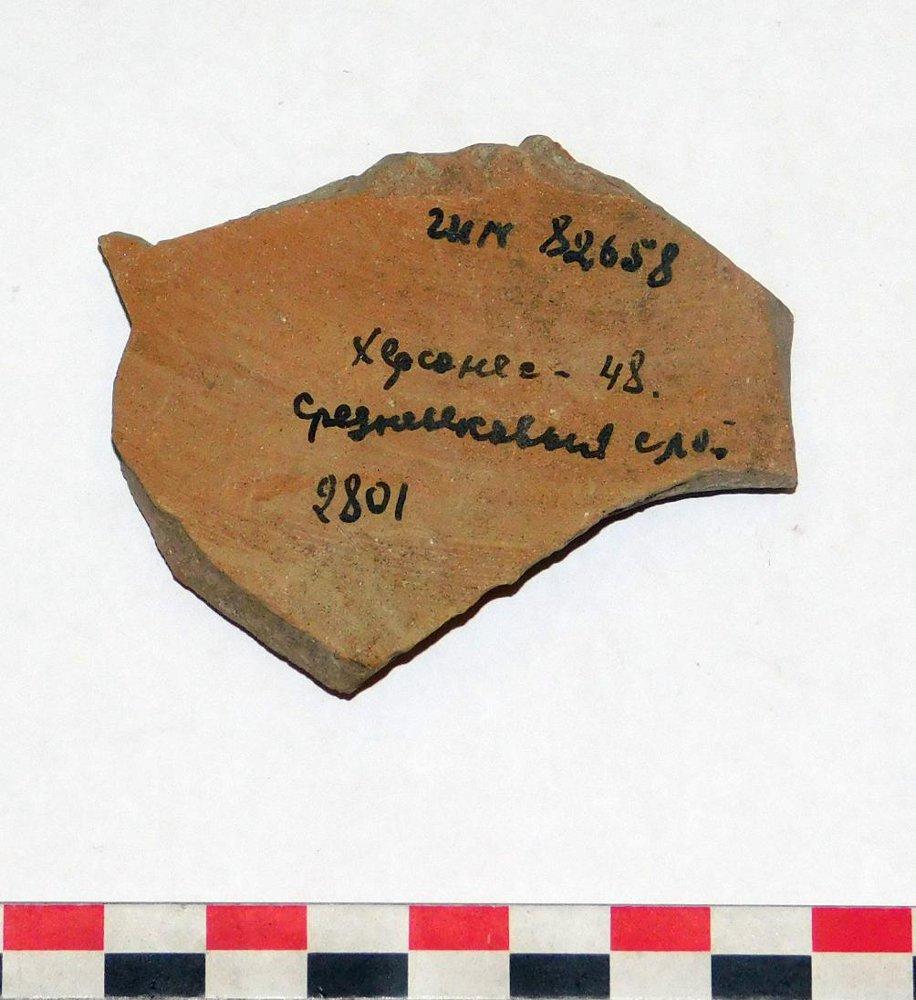 гим 82658
Херсонес - 48.
Средневековый слой
2801